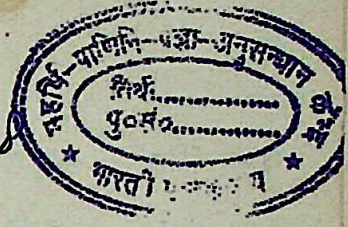 महर्षि-पाणिनि-प्रज्ञा-अनुसन्धान
तिथि
पु०सं०
भारती